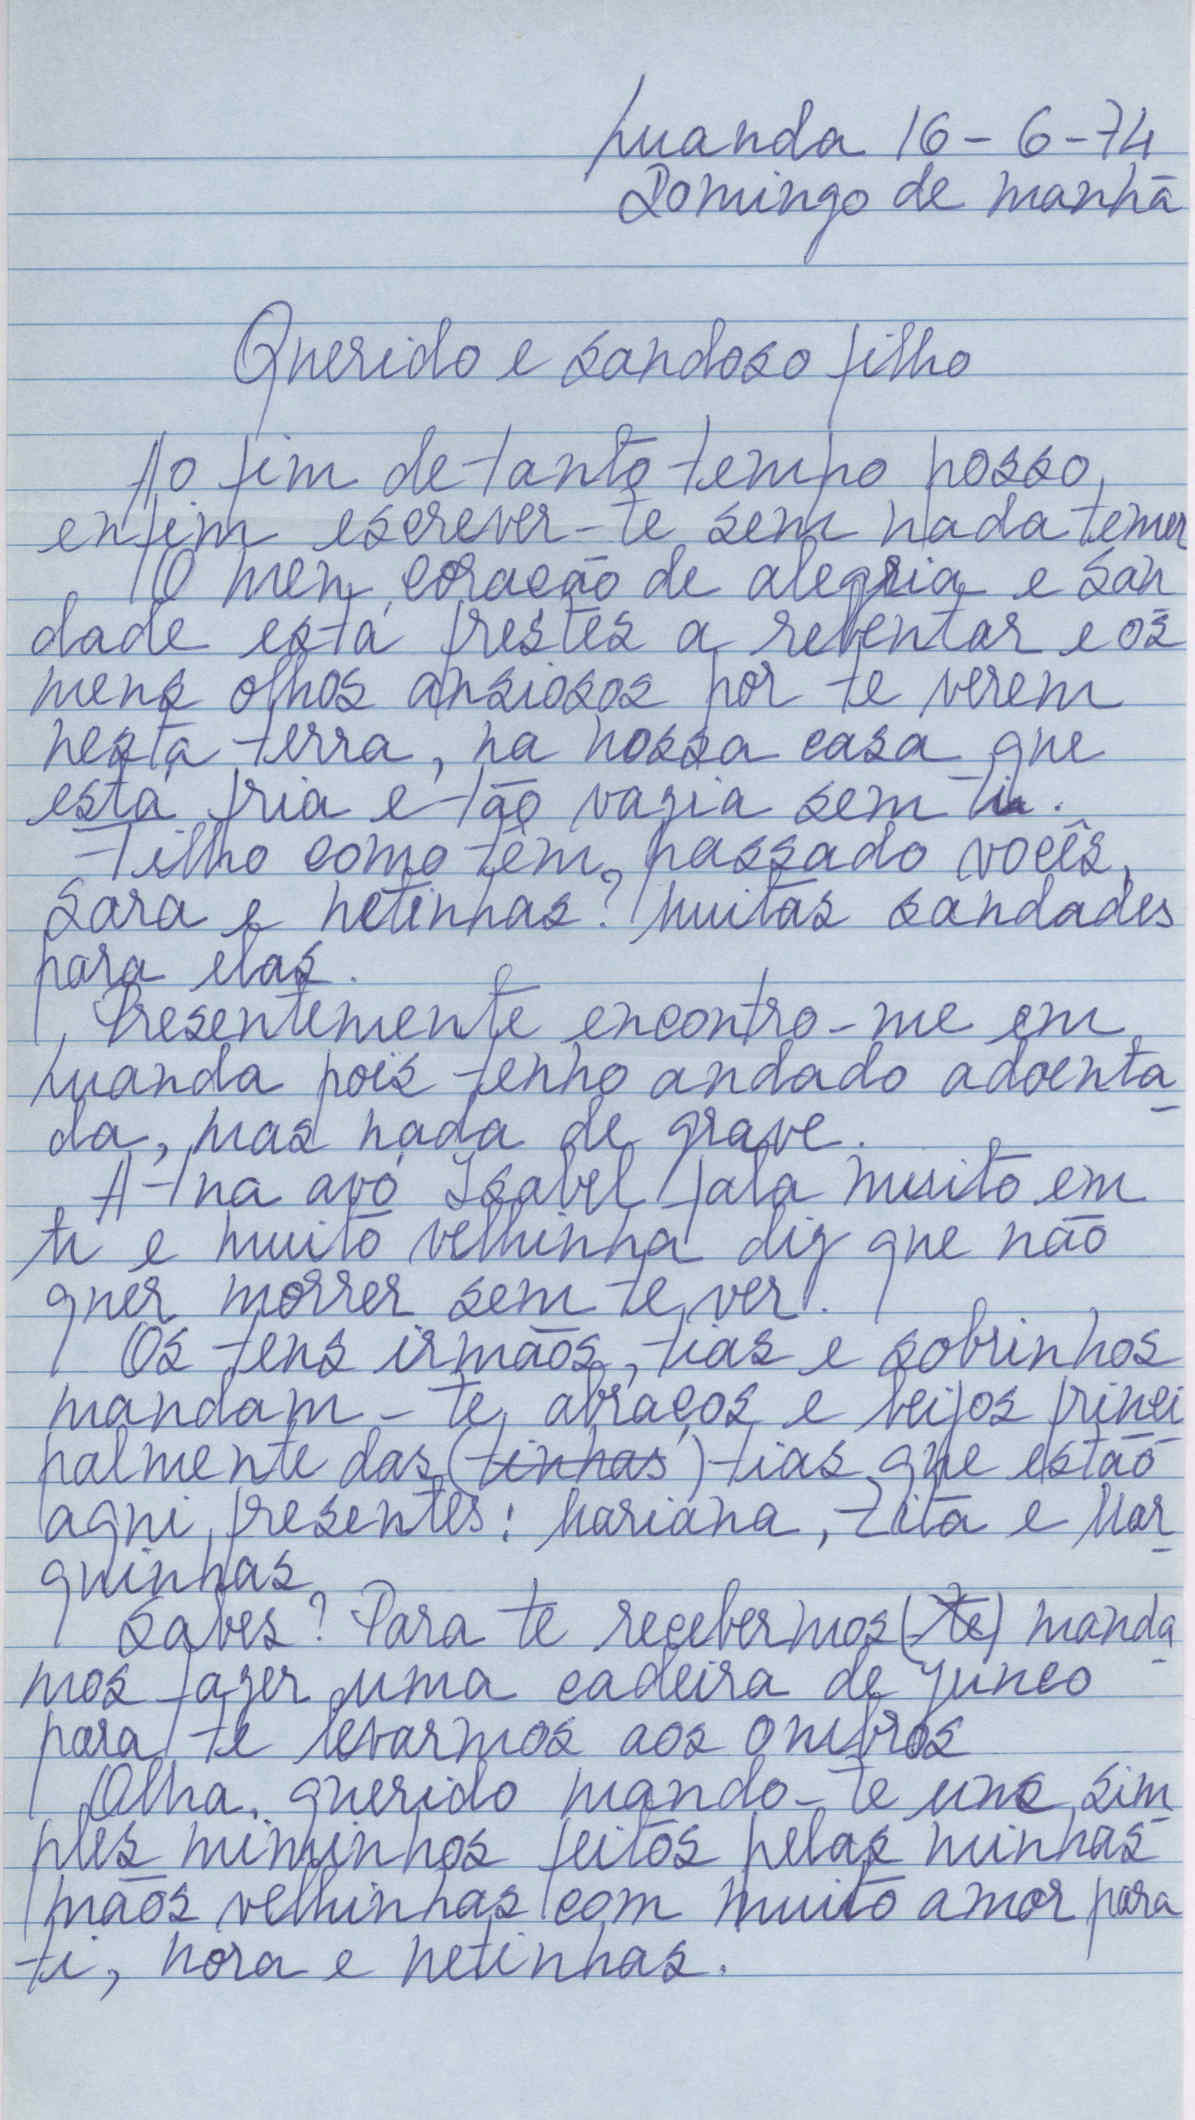 Luanda 16-6-74
Domingo de manhã
Querido e saudoso filho
Ao fim de tanto tempo posso,
enfim escrever-te sem nada temer
O meu coração de alegria e sau
dade está prestes a rebentar e os
meus olhos ansiosos por te verem
nesta terra, na nossa casa que
está fria e tão vazia sem ti.
Filho como têm passado vocês,
Sara e netinhas? Muitas saudades
para elas.
Presentemente encontro-me em
Luanda pois tenho andado adoenta
da, mas nada de grave.
A tua avó Isabel fala muito em
ti e muito velhinha diz que não
quer morrer sem te ver.
Os teus irmãos, tias e sobrinhos
mandam-te abraços e beijos princi
palmente das (tinhas) tias que estão
aqui presentes: Mariana, Zita e Mar
quinhas
Sabes? Para te recebermos (te) manda
mos fazer uma cadeira de junco
para te levarmos aos ombros
Olha, querido mando-te uns sim
ples miminhos feitos pelas minhas
mãos velhinhas com muito amor para
ti, nora e netinhas.